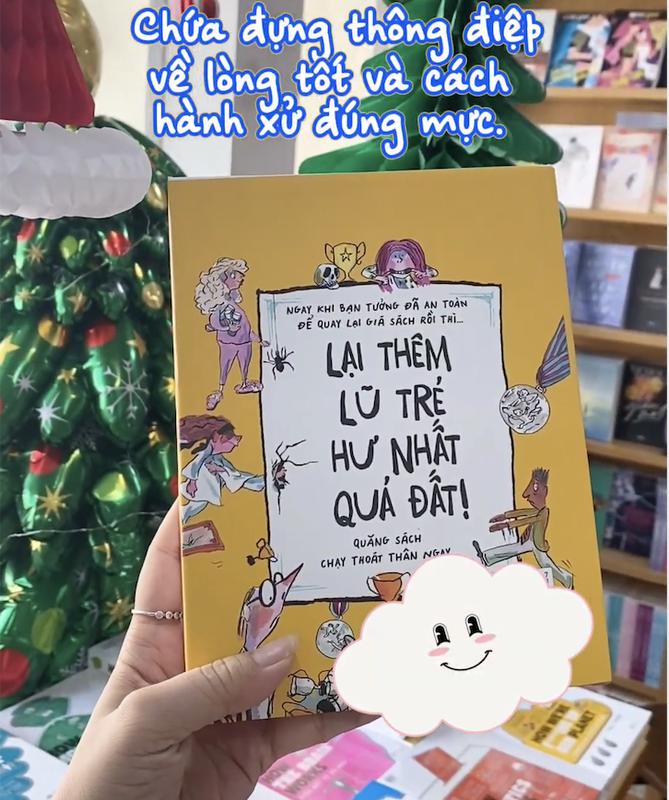 Chứa đựng thông điệp
về lòng tốt và cách
hành xử đúng mực.
NGAY KHI BẠN TƯỞNG ĐÃ AN TOÀN
ĐỂ QUAY LẠI GIÁ SÁCH RỒI THÌ...
LẠI THÊM
LŨ TRẺ
HƯ NHẤT
QUẢ ĐẤT!
QUĂNG SÁCH
CHẠY THOÁT THÂN NGAY